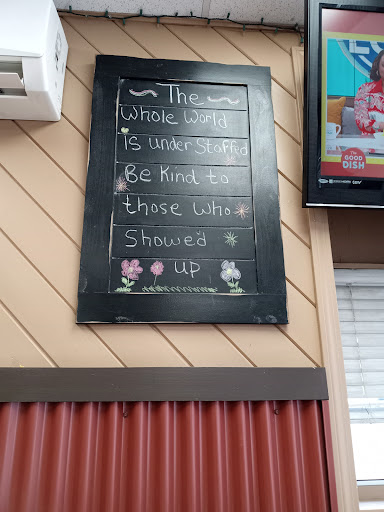 The
Whole World
is under Staffed
Be Kind to
those who
Showed
up
The
GOOD
DISH